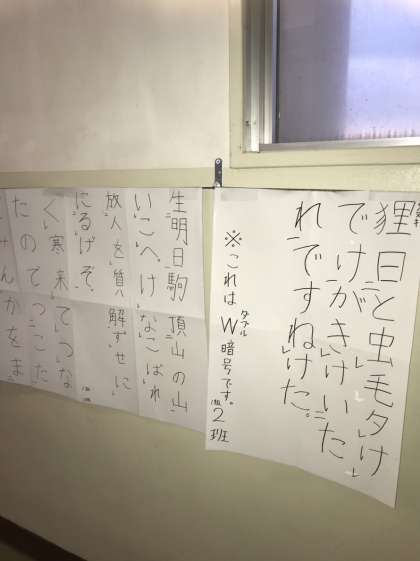 狸日と虫毛夕け
でけがかきけいた
れですねけた。
※これはW暗号です。
ダブル
2班
生明日駒頂山の山
いこへけなこばれ
放人を質解ずせに
にるげぞ、
く寒来てつな
たのてつこた
んかをま